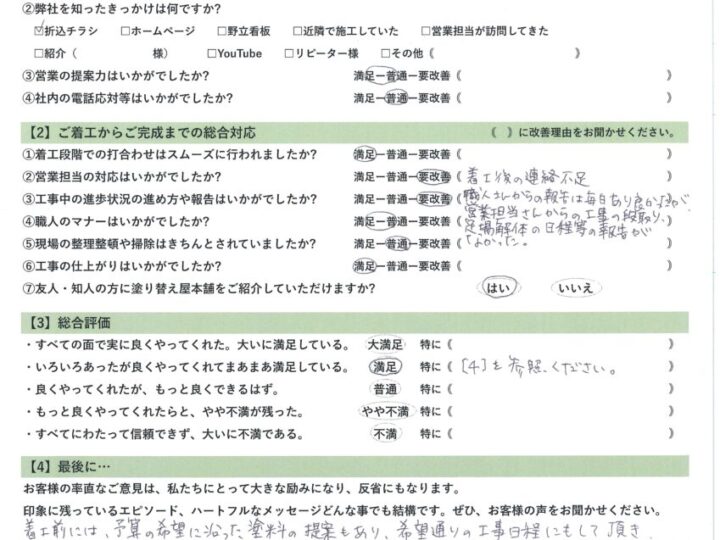 ②弊社を知ったきっかけは何ですか?
☑折込チラシ □ホームページ □野立看板 □近隣で施工していた □営業担当が訪問してきた
□紹介（ 様） □YouTube □リピーター様 □その他《 》
③営業の提案力はいかがでしたか? 満足ー普通ー要改善《 》
④社内の電話応対等はいかがでしたか? 満足ー普通ー要改善《 》
【2】ご着工からご完成までの総合対応 《 》に改善理由をお聞かせください。
①着工段階での打合わせはスムーズに行われましたか? 満足ー普通ー要改善《 》
②営業担当の対応はいかがでしたか? 満足ー普通ー要改善《着工後の連絡不足 》
③工事中の進歩状況の進め方や報告はいかがでしたか? 満足ー普通ー要改善《職人さんからの報告は毎日あり良かったが、》
④職人のマナーはいかがでしたか? 満足ー普通ー要改善《営業担当さんからの工事の段取り、》
⑤現場の整理整頓や掃除はきちんとされていましたか? 満足ー普通ー要改善《足場解体の日程等の報告が
なかった。 》
⑥工事の仕上がりはいかがでしたか? 満足ー普通ー要改善《 》
⑦友人・知人の方に塗り替え屋本舗をご紹介していただけますか? はい いいえ
【3】総合評価
・すべての面で実に良くやってくれた。大いに満足している。 大満足 特に《 》
・いろいろあったが良くやってくれてまあまあ満足している。 満足 特に《[4]を参照ください。 》
・良くやってくれたが、もっと良くできるはず。 普通 特に《 》
・もっと良くやってくれたらと、やや不満が残った。 やや不満 特に《 》
・すべてにわたって信頼できず、大いに不満である。 不満 特に《 》
【4】最後に…
お客様の率直なご意見は、私たちにとって大きな励みになり、反省にもなります。
印象に残っているエピソード、ハートフルなメッセージどんな事でも結構です。ぜひ、お客様の声をお聞かせください。
着工前には、予算の希望に沿った塗料の提案もあり、希望通りの工事日程にもして頂き、